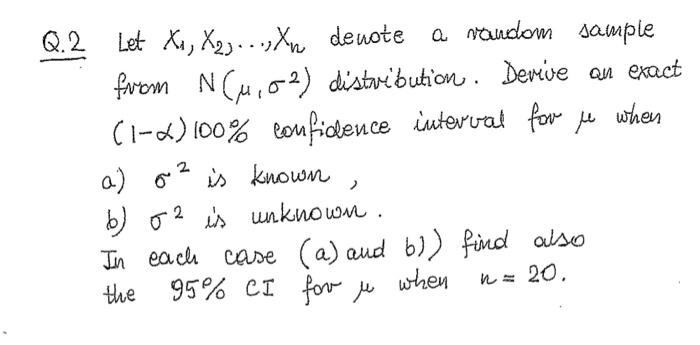 Q.2 Let X₁, X₂, ..., Xₙ denote a random sample
from N(μ, σ²) distribution. Derive an exact
(1-α)100% confidence interval for μ when
a) σ² is known,
b) σ² is unknown.
In each case (a) and b)) find also
the 95% CI for μ when n = 20.